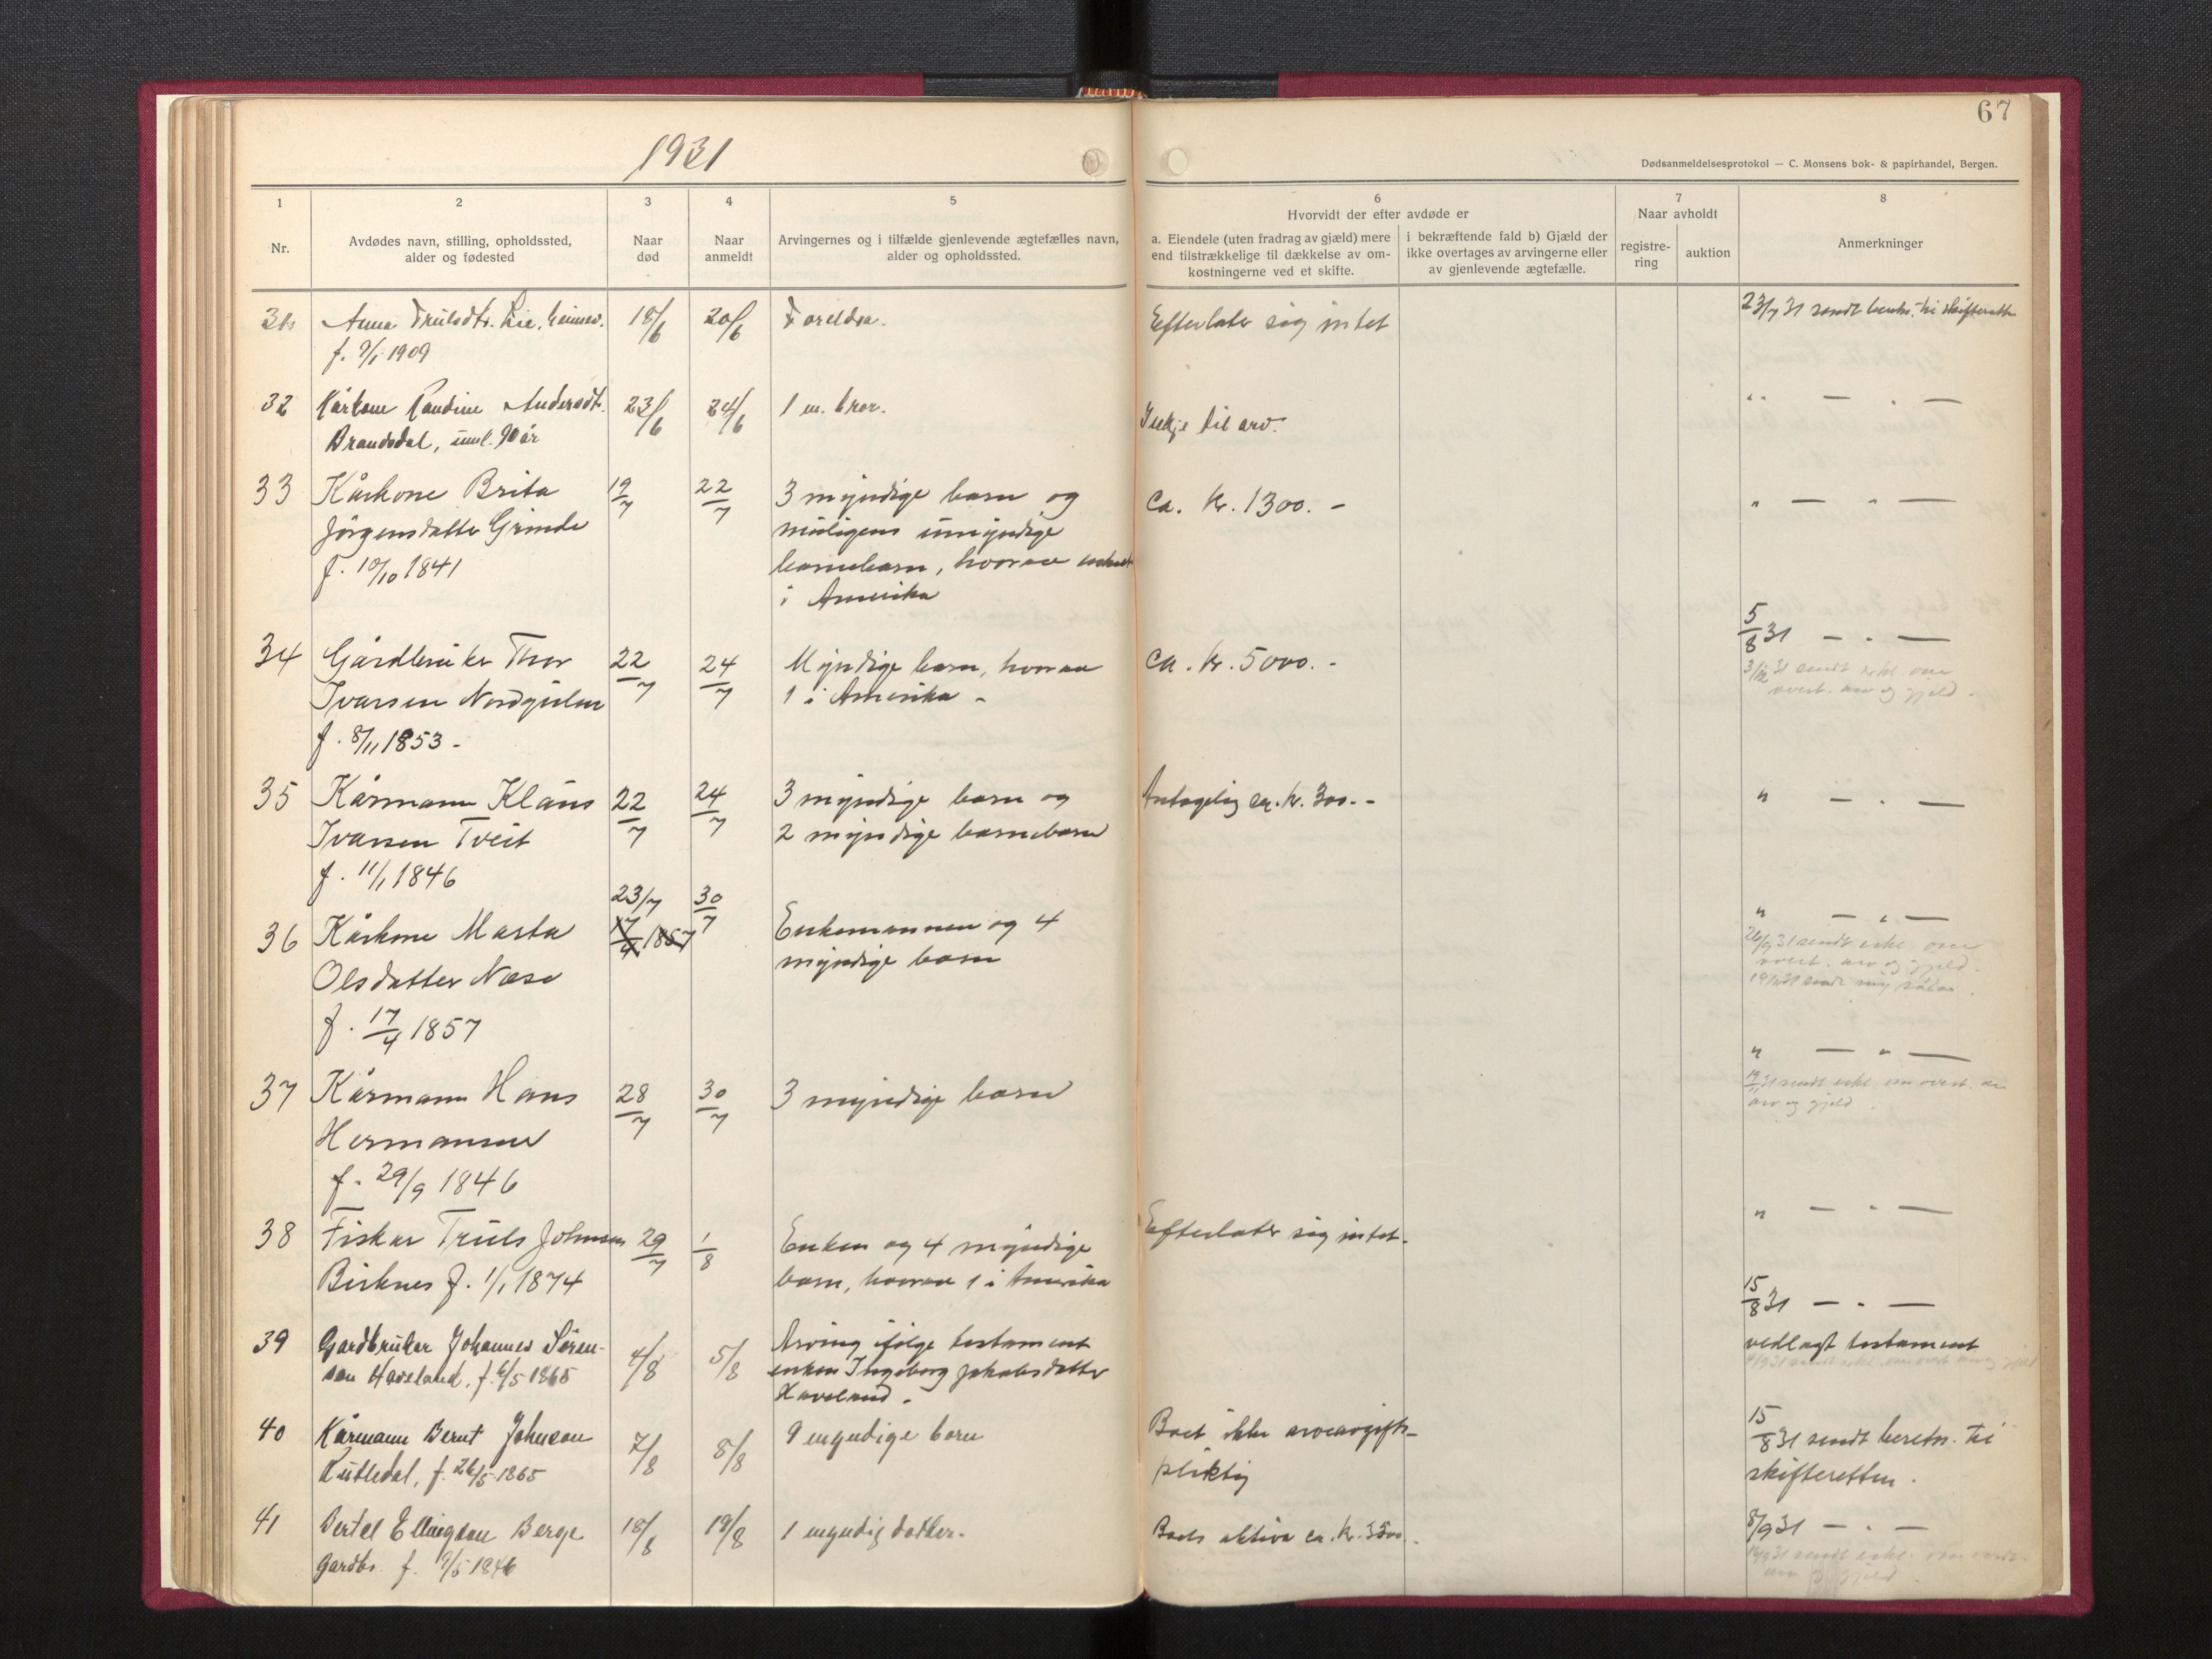 67
1931
Dødsanmeldelsesprotokol — C. Monsens bok- & papirhandel, Bergen.
1
2
3
4
5
6
7
8
Nr.
Avdødes navn, stilling, opholdssted,
alder og fødested
Naar
død
Naar
anmeldt
Arvingernes og i tilfælde gjenlevende ægtefælles navn,
alder og opholdssted.
Hvorvidt der efter avdøde er
a. Eiendele (uten fradrag av gjæld) mere
end tilstrækkelige til dækkelse av om-
kostningerne ved et skifte.
i bekræftende fald b) Gjæld der
ikke overtages av arvingerne eller
av gjenlevende ægtefælle.
Naar avholdt
registre-
ring
auktion
Anmerkninger
31. Anna Trulsdtr. Lie,
f. 9/1 1909
18/6
20/6
Foreldra.
Efterlater sig intet
23/7 31 sendt beretn. til skifteretten
32 Kårkone Randine Andersdtr.
Brandsdal, uml. 90 år
23/6
24/6
1 m. bror.
Ikkje til arv.
" — " —
33 Kårkone Brita
Jörgensdatter Grinde
f. 10/10 1841
19/7
22/7
3 myndige barn og
muligens umyndige
barnebarn, hvorav
i Amerika
Ca. kr. 1300. -
" — " —
34 Gårdbruker Thor
Ivarsen Nordgulen
f. 8/11 1853 -
22/7
24/7
Myndige barn, hvorav
1 i Amerika -
Ca. kr. 5000. -
5/8 31 — " —
3/12 31 sendt erkl. om
overt. arv og gjeld.
35 Kårmann Klaus
Ivarsen Tveit
f. 11/1 1846
22/7
24/7
3 myndige barn og
2 myndige barnebarn
Antagelig ca. kr. 300. -
" — " —
36 Kårkone Marta
Olsdatter Nese
f. 17/4 1857
23/7
17/4 1857
30/7
Enkemannen og 4
myndige barn
" — " —
26/9 31 sendt erkl. om
overt. arv og gjeld.
37 Kårmann Hans
Hermansen
f. 29/9 1846
28/7
30/7
3 myndige barn
" — " —
19/11 31 sendt erkl. om overt. av
arv og gjeld.
38 Fisker Truls Johnsen
Birknes f. 1/1 1874
29/7
1/8
Enken og 4 myndige
barn, hvorav 1 i Amerika
Efterlater sig intet.
" — " —
39 Gardbruker Johannes Sören-
sen Haveland, f. 6/5 1865
4/8
5/8
Arving ifölge testament
enken Ingeborg Jakobsdatter
Haveland.
15/8 31 — " —
vedlagt testament
40 Kårmann Bernt Johnson
Rutledal, f. 26/5 1865
7/8
8/8
9 myndige born
Boet ikke arveavgifts-
pliktig
15/8 31 sendt beretn. til
skifteretten.
41 Bertel Ellingsen Berge
Gardbr. f. 9/5 1846
18/8
19/8
1 myndig dotter.
Boets aktiva ca. kr. 3500.
8/9 31 — " —
14/9 31 sendt erkl. om overt.
arv og gjeld.